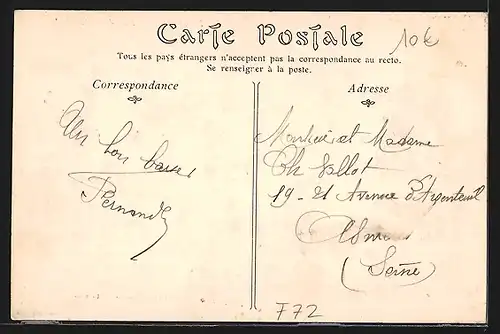 Carte Postale
10€
Tous les pays étrangers n'acceptent pas la correspondance au recto.
Se renseigner à la poste.
Correspondance
Un bon baiser
Fernand
Adresse
Monsieur et Madame
Ch
19-21 Avenue d'Argenteuil
(Seine)
F72